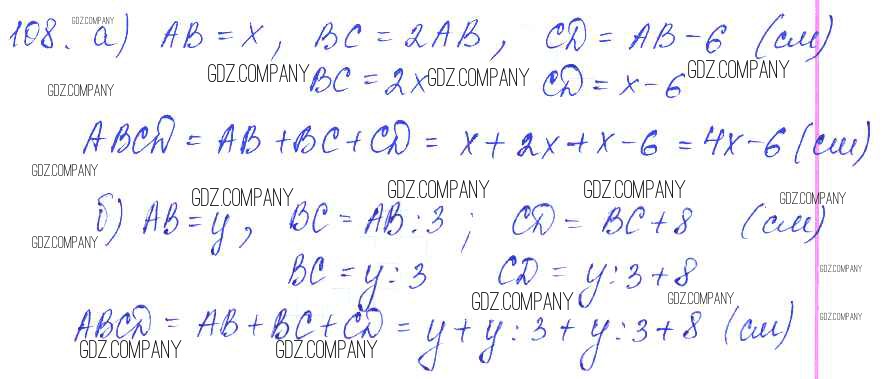 GDZ.COMPANY
108. а) AB = x, BC = 2AB, CD = AB - 6 (см)
GDZ.COMPANY GDZ.COMPANY GDZ.COMPANY
GDZ.COMPANY BC = 2x CD = x - 6
ABCD = AB + BC + CD = x + 2x + x - 6 = 4x - 6 (см)
GDZ.COMPANY
GDZ.COMPANY GDZ.COMPANY GDZ.COMPANY GDZ.COMPANY
б) AB = y, BC = AB : 3; CD = BC + 8 (см)
GDZ.COMPANY
BC = y : 3 CD = y : 3 + 8 GDZ.COMPANY
GDZ.COMPANY GDZ.COMPANY
ABCD = AB + BC + CD = y + y : 3 + y : 3 + 8 (см) GDZ.COMPANY
GDZ.COMPANY GDZ.COMPANY